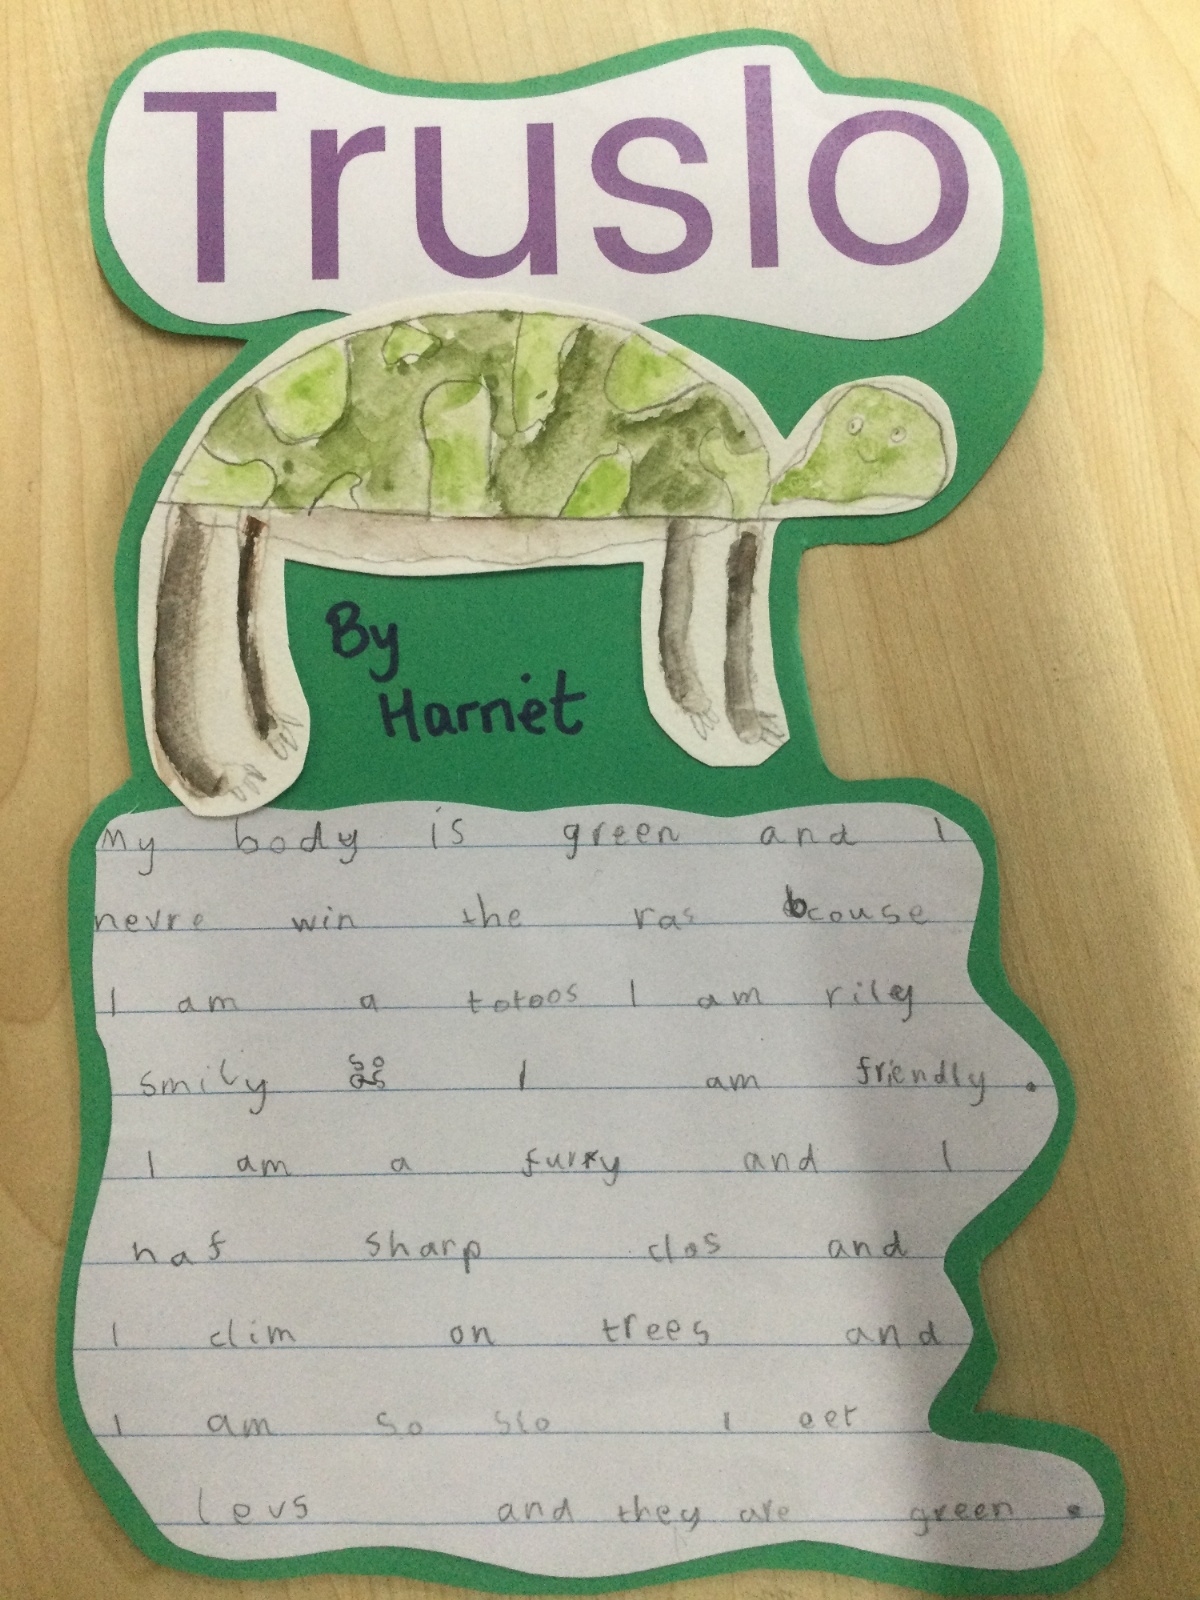 Truslo
By
Harriet
My body is green and I
nevre win the ras bcouse
I am a totoos I am rily
smily I am friendly .
I am a furry and I
haf sharp clos and
I clim on trees and
I am so slo I eet
levs and they are green .